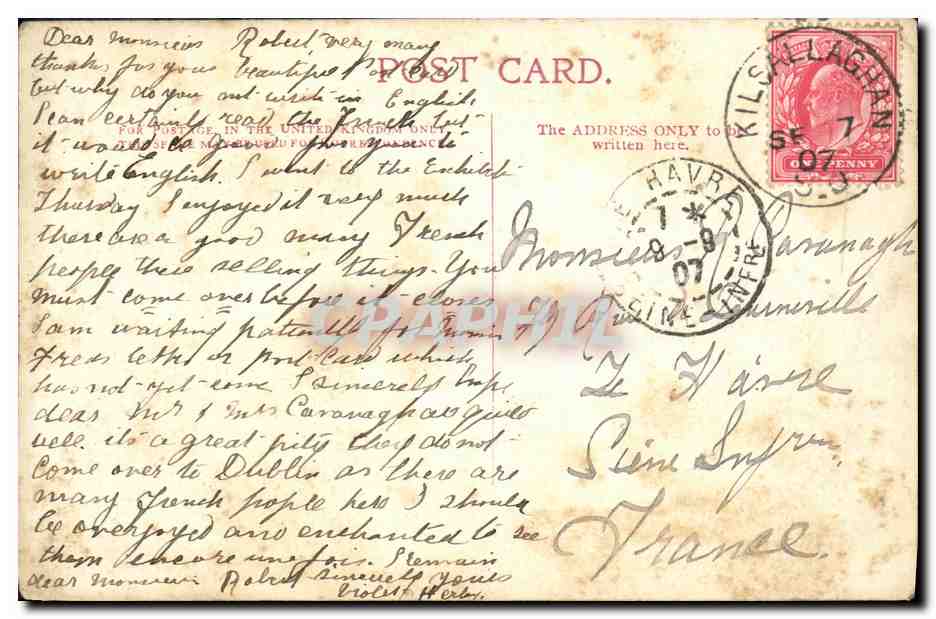 Dear Monsieur Robert, very many
thanks for your beautiful Post Card
but why do you not write in English
I can certainly read the French but
it would be good for you to
write English. I went to the Exhibit
Thursday I enjoyed it very much
there are a good many French
people there selling things. You
must come over before it closes
I am waiting patiently for
letter or post Card which
has not yet come I sincerely hope
dear Mr & Mrs Cavanagh are quite
well. it's a great pity they do not
come over to Dublin as there are
many French people here I should
be overjoyed and enchanted to see
them encore une fois. I remain
dear Monsieur Robert sincerely yours
Violet
POST CARD.
FOR POSTAGE IN THE UNITED KINGDOM ONLY
THIS SPACE MAY BE USED FOR CORRESPONDENCE
The ADDRESS ONLY to be
written here.
KILSALLAGHAN
SE 7
07
ONE PENNY
HAVRE
7 *
9 - 9
07
SEINE INFRE
Monsieur Cavanagh
79 Rue
Le Havre
Seine Infre
France.
CPAPHIL